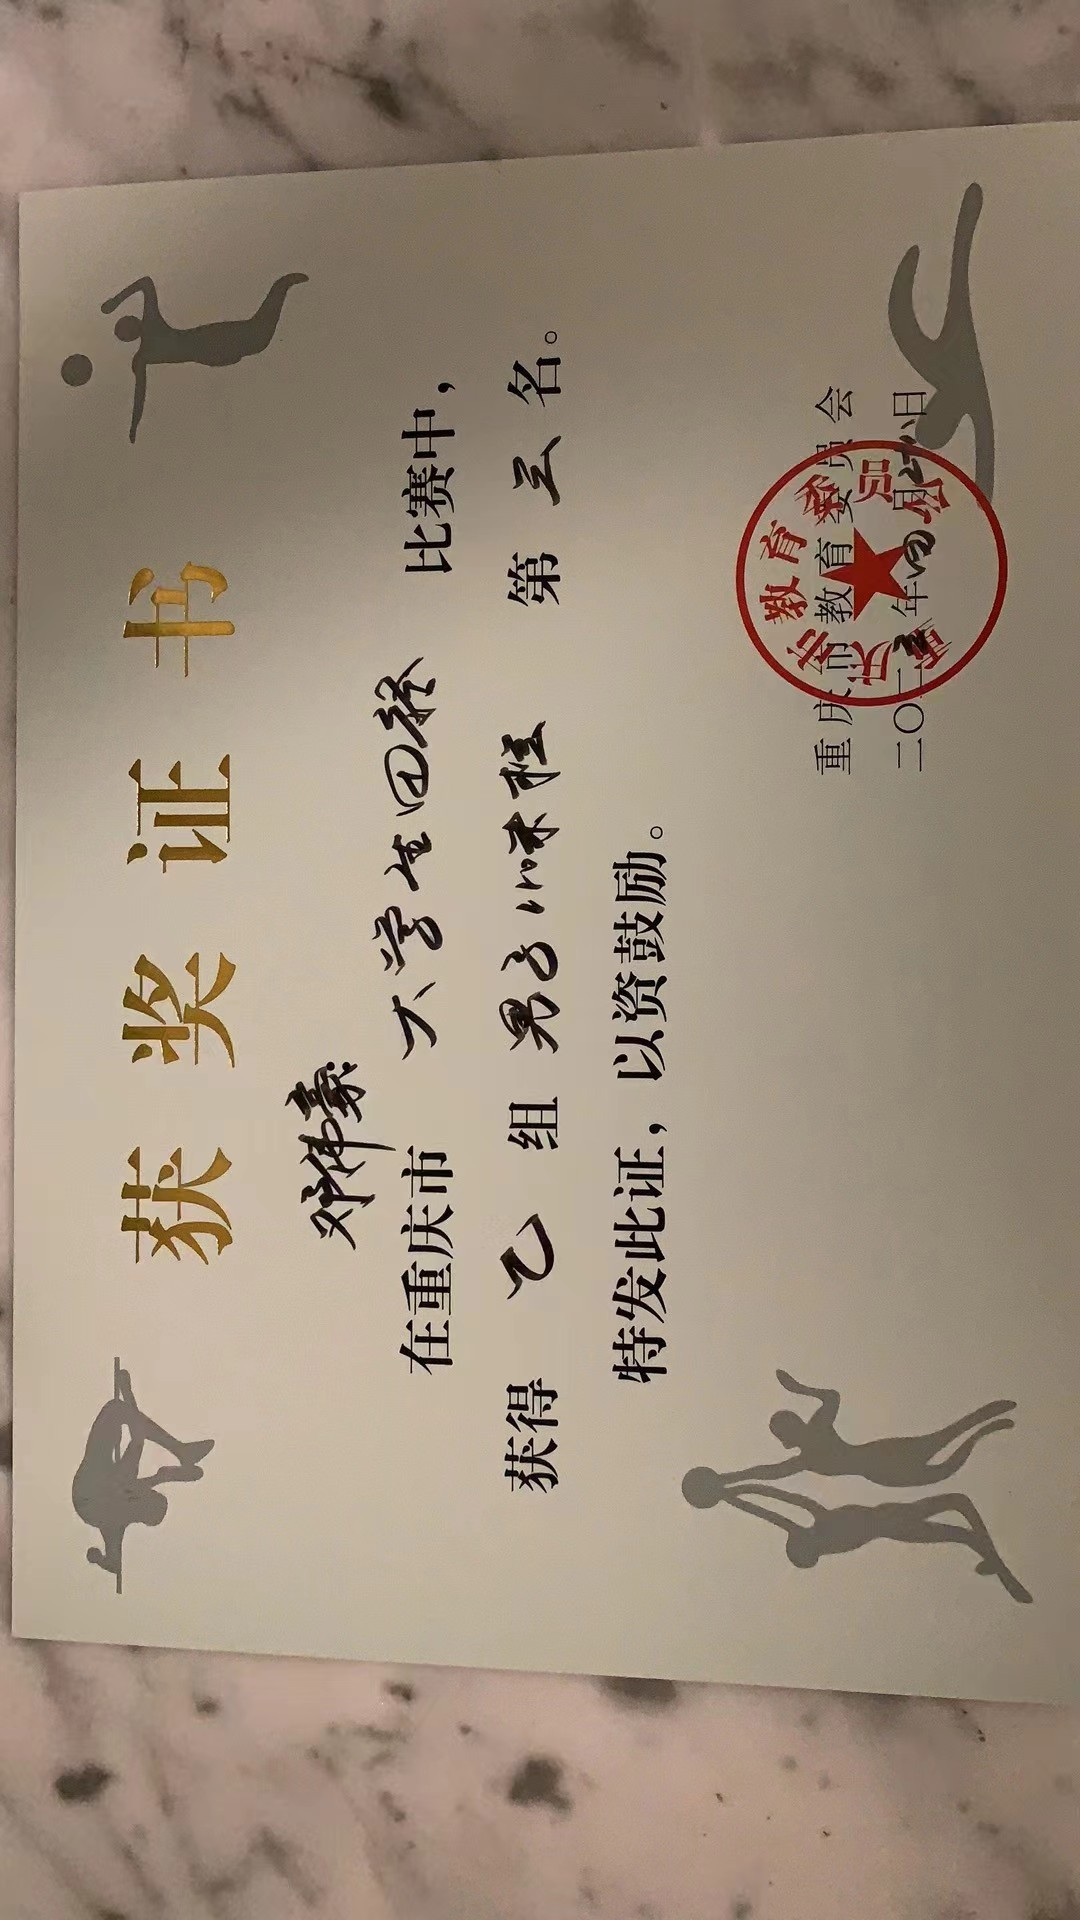 获奖证书
邓伟豪
在重庆市 大学生田径 比赛中，
获得 乙 组 男子110米栏 第 三 名。
特发此证，以资鼓励。
重庆市教育委员会
二〇二三年四月 日
重庆市教育委员会